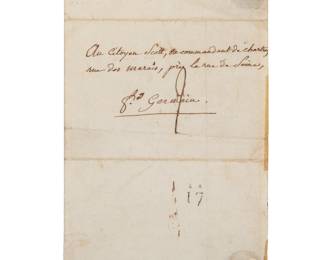 Au Citoyen Scott, commandant de
rue des marais, près la rue de Seine,
fg Germain.
2
17